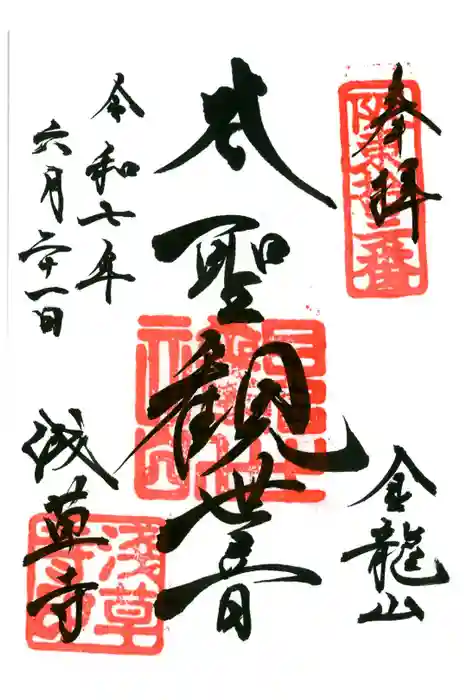 奉拝
坂東拾三番
金龍山
聖観世音
令和七年
六月二十一日
浅草寺
淺草